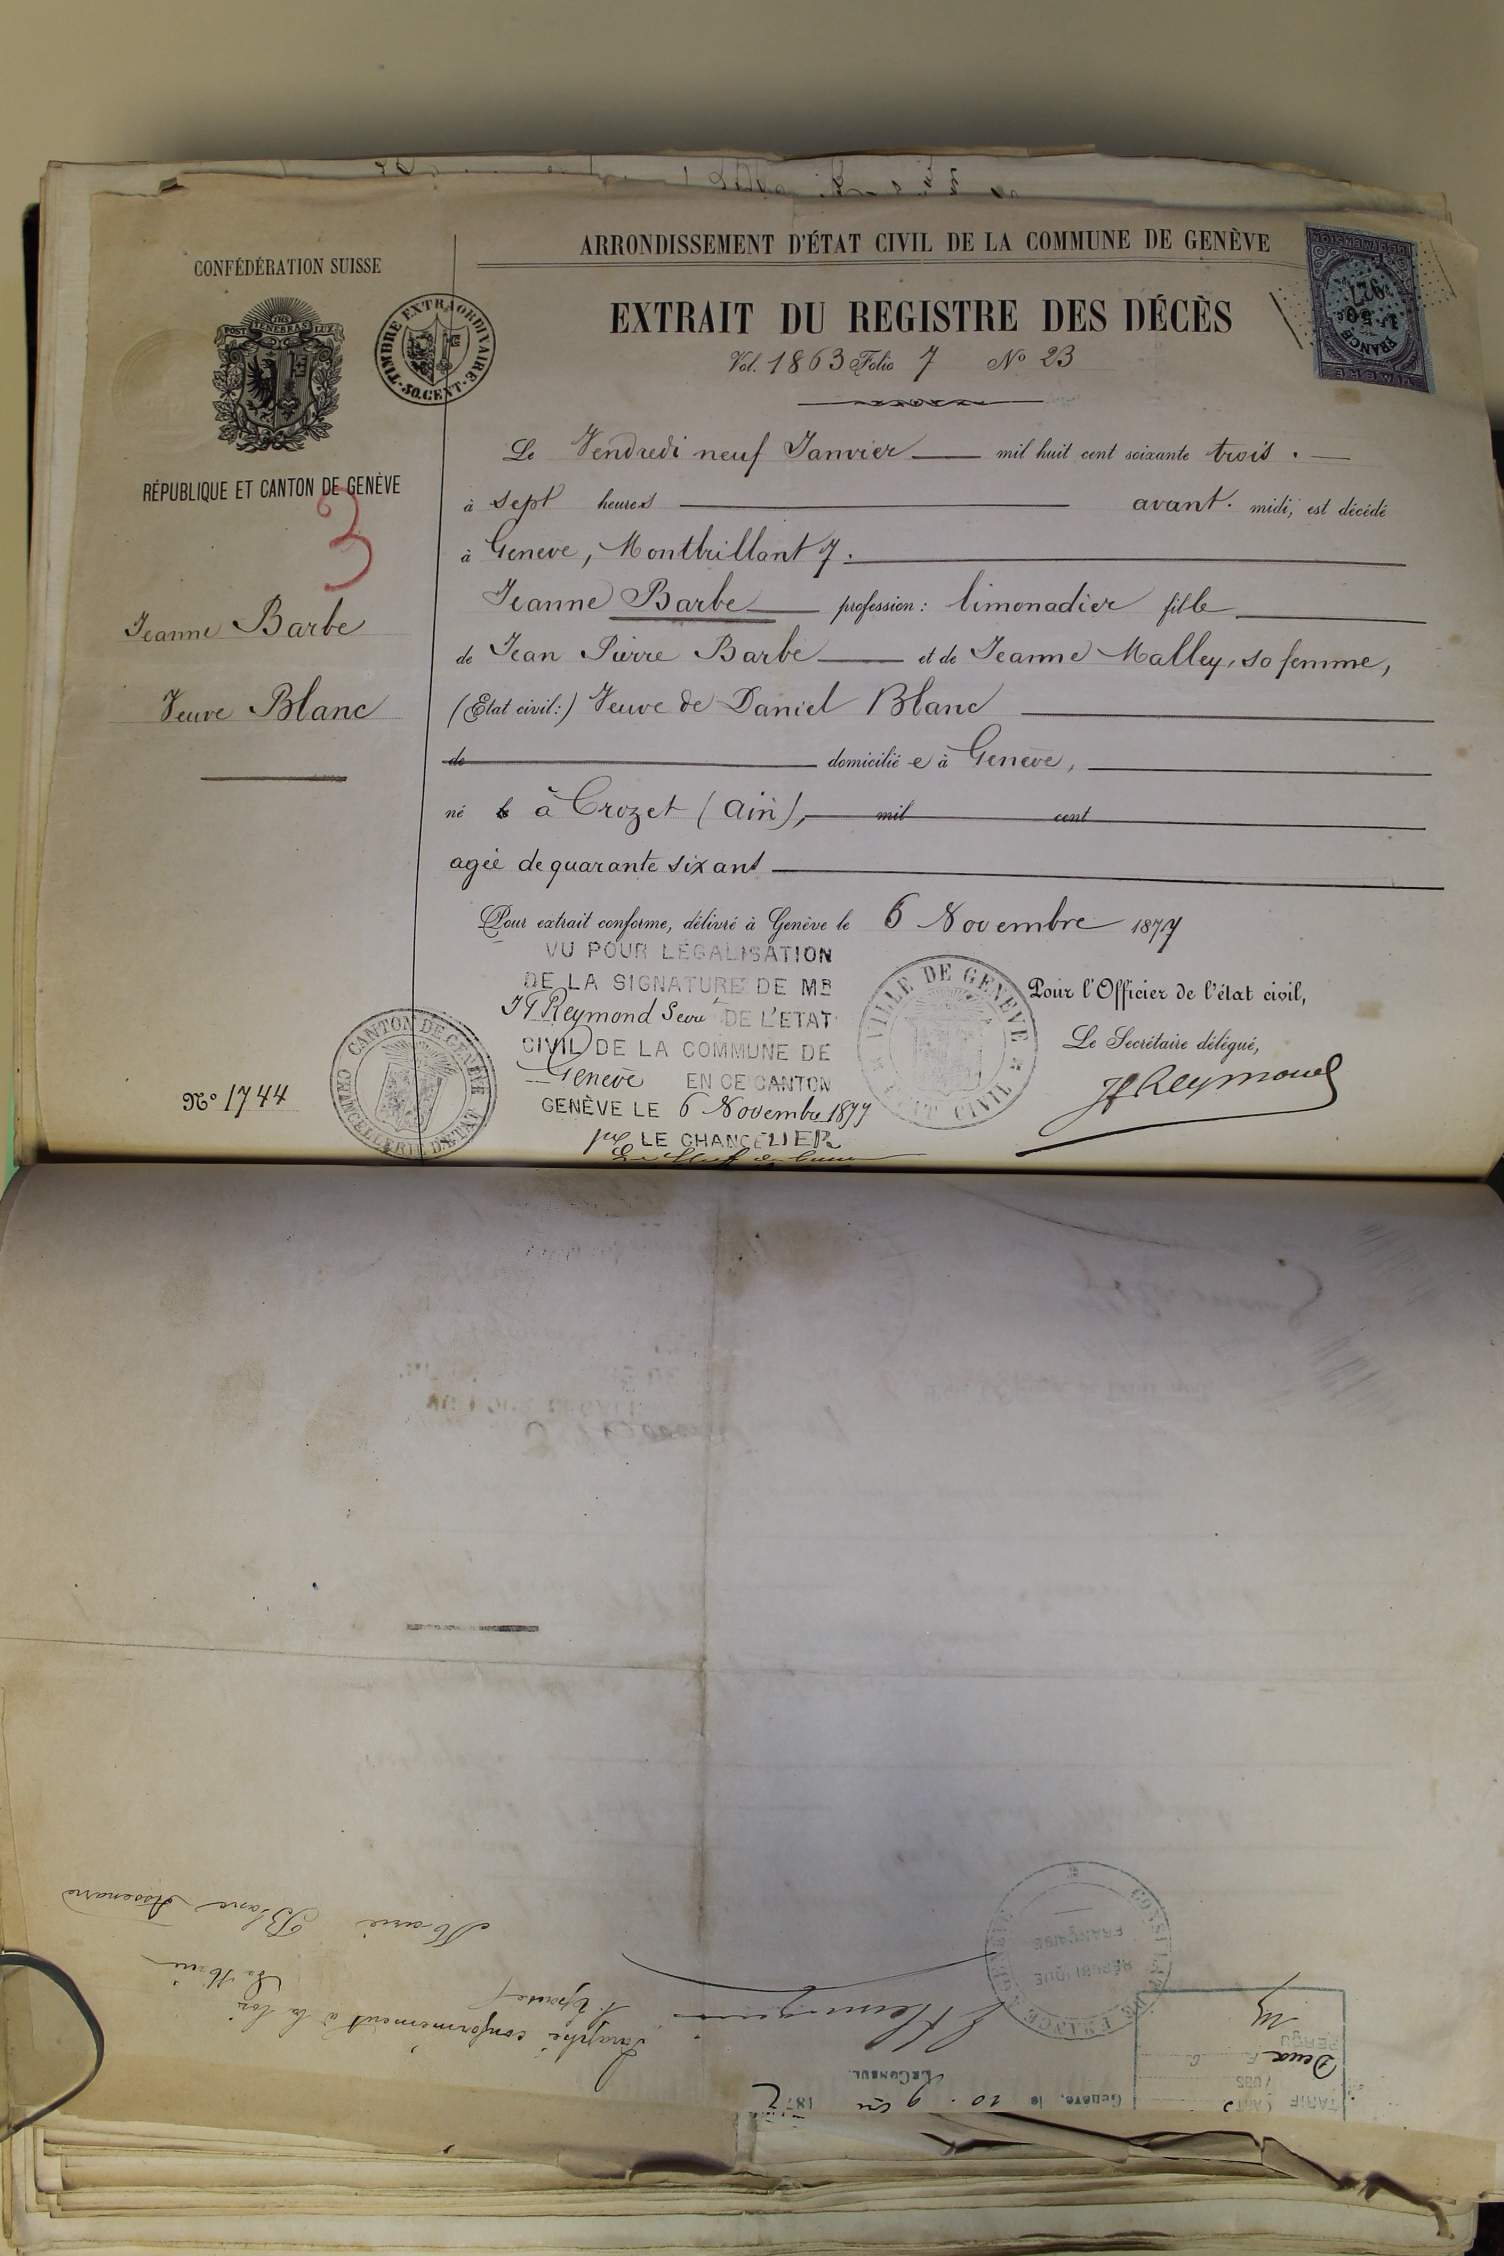 CONFÉDÉRATION SUISSE
POST TENEBRAS LUX
TIMBRE EXTRAORDINAIRE
50. CENT.
RÉPUBLIQUE ET CANTON DE GENÈVE
3
Jeanne Barbe
Veuve Blanc
No 1744
ARRONDISSEMENT D'ÉTAT CIVIL DE LA COMMUNE DE GENÈVE
EXTRAIT DU REGISTRE DES DÉCÈS
Vol. 1863 Folio 7 No 23
Le Vendredi neuf Janvier mil huit cent soixante trois.
à sept heures avant. midi, est décédé
à Genève, Montbrillant 7.
Jeanne Barbe profession: limonadier fille
de Jean Pierre Barbe et de Jeanne Malley, sa femme,
(Etat civil:) Veuve de Daniel Blanc
de domicilié e à Genève,
né à Crozet (Ain), mil cent
agée de quarante six ans
Pour extrait conforme, délivré à Genève le 6 Novembre 1877
VU POUR LÉGALISATION
DE LA SIGNATURE DE MR
Reymond DE L'ETAT
CIVIL DE LA COMMUNE DE
Genève EN CE CANTON
GENÈVE LE 6 Novembre 1877
LE CHANCELIER
CANTON DE GENÈVE
CHANCELLERIE D'ÉTAT
VILLE DE GENÈVE
ETAT CIVIL
Pour l'Officier de l'état civil,
Le Secrétaire délégué,
Reymond
TIMBRE
FRANCE
Genève, le 10. 9bre 187
LE CONSUL.
TARIF
Deux
PERÇU
RÉPUBLIQUE
FRANÇAISE
Paraphé conformément à la loi
L'épouse
Le Mari
Marie Blanc